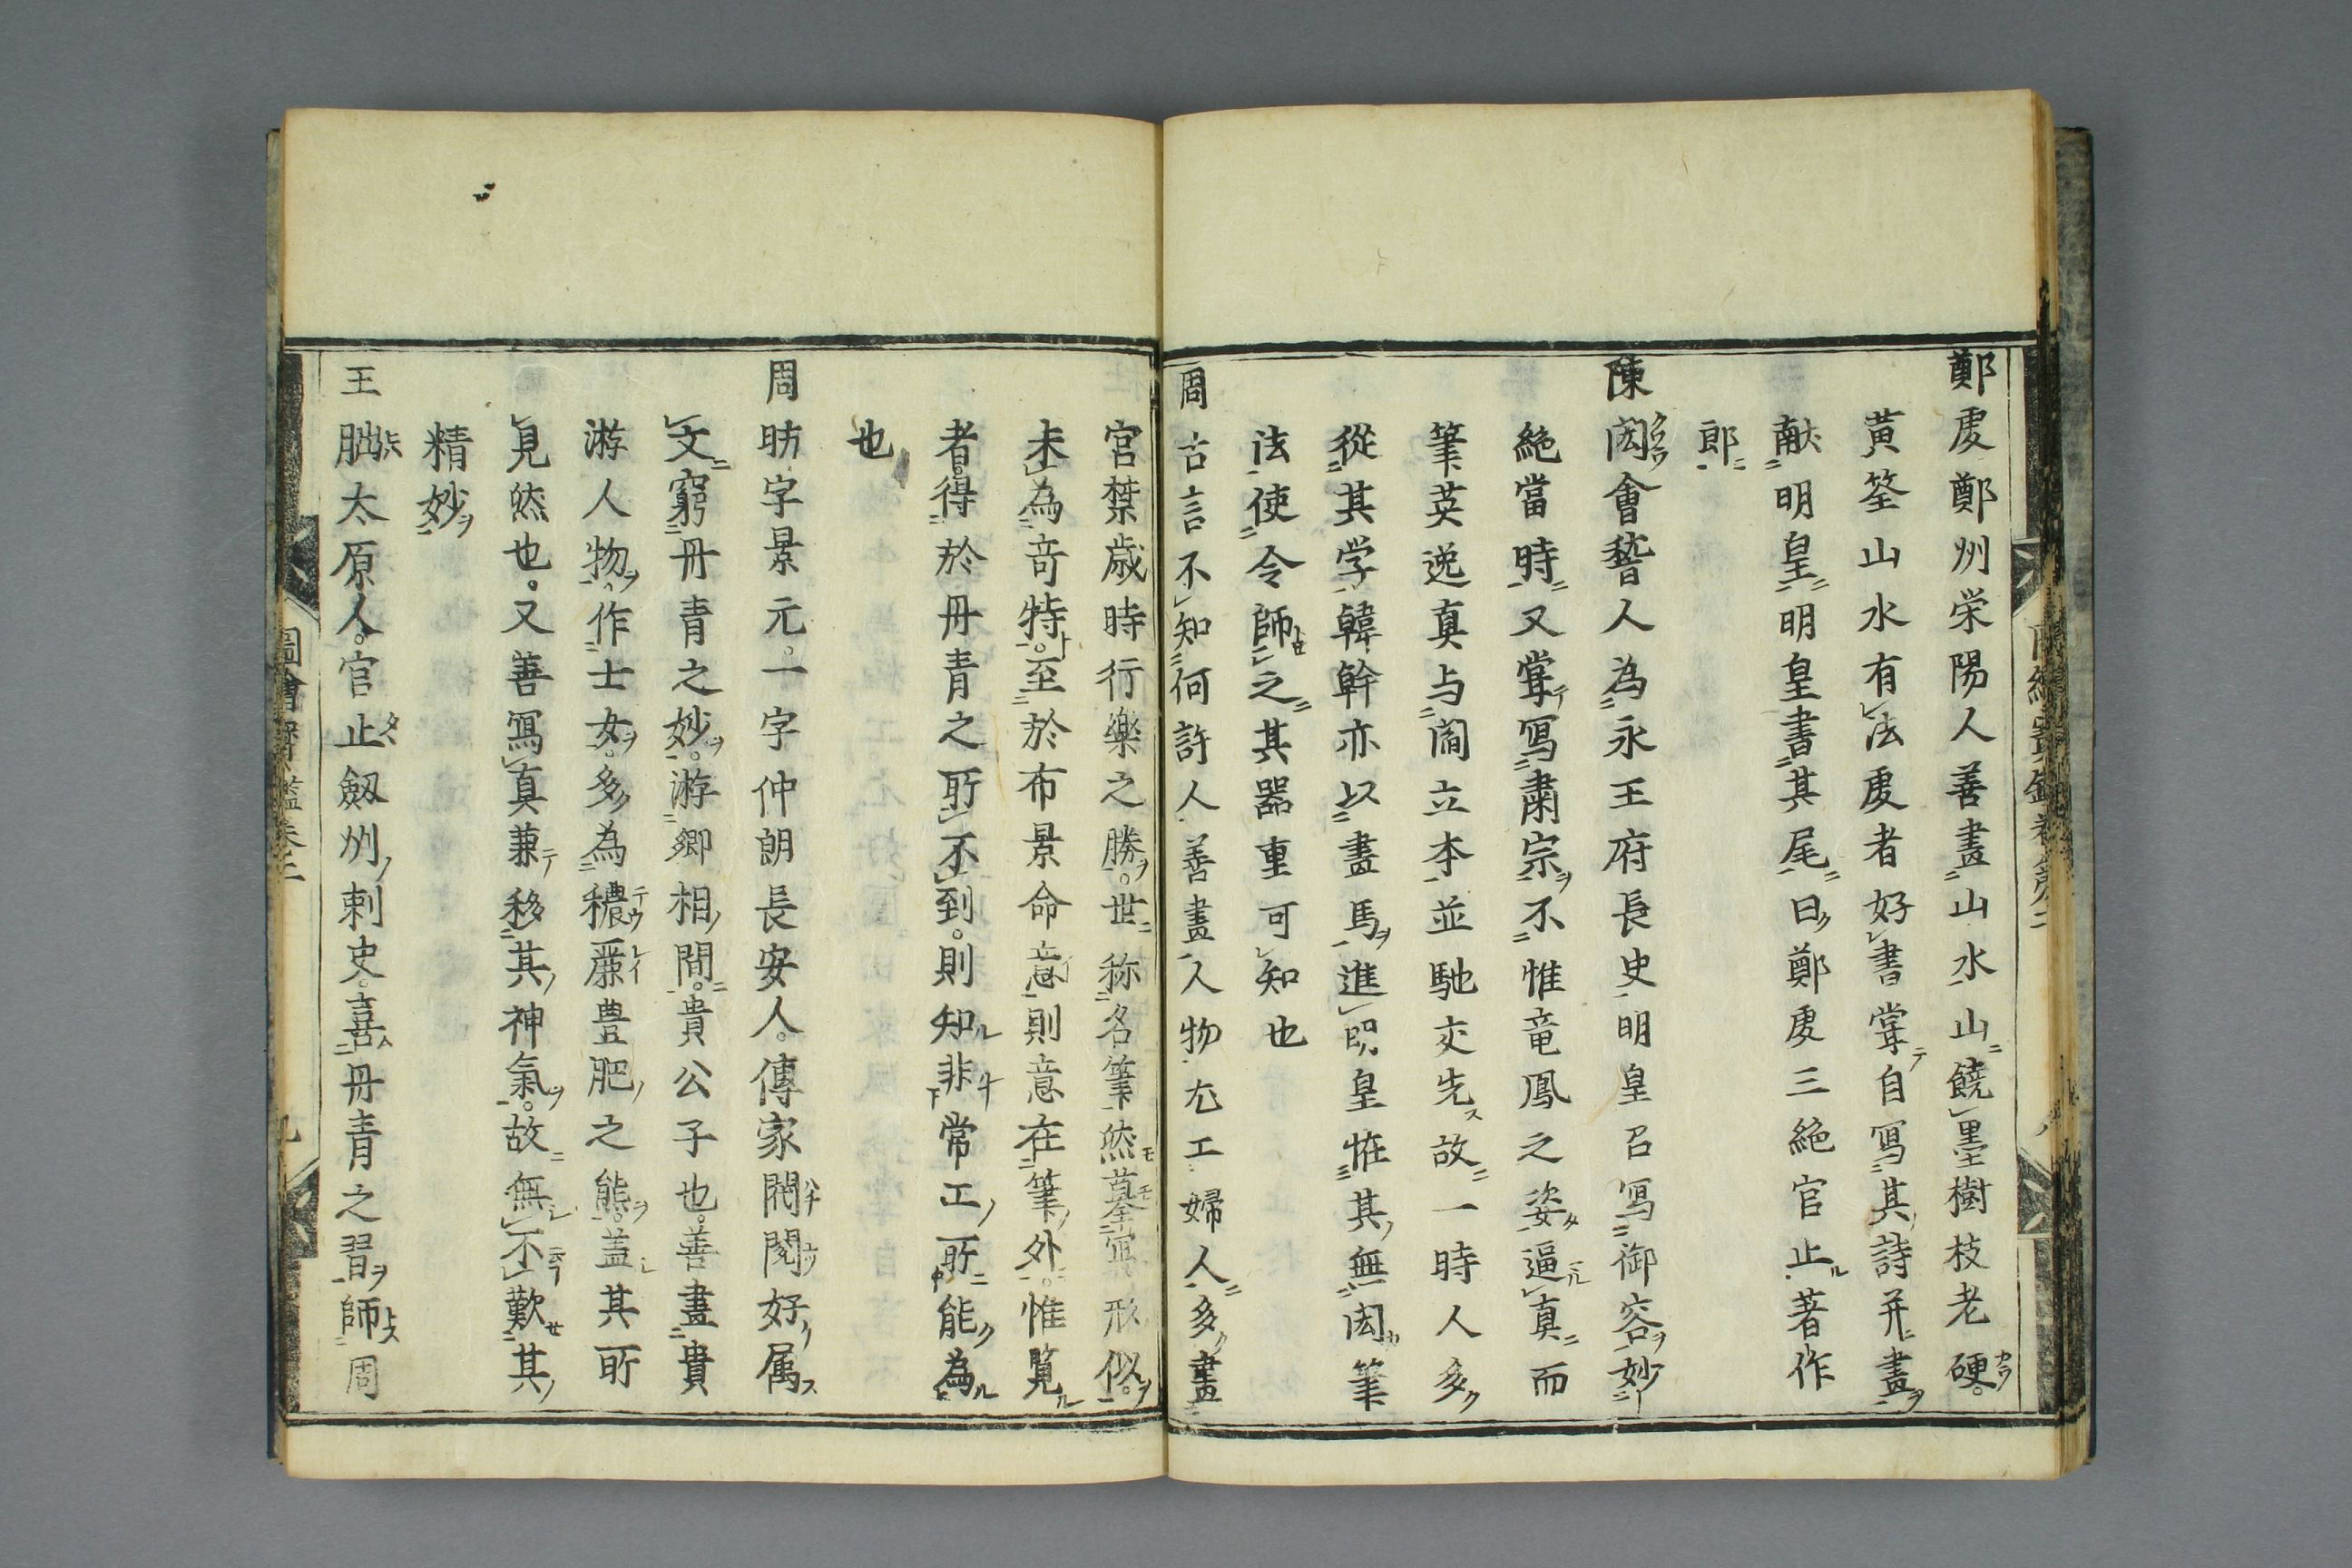 鄭虔鄭州栄陽人善畫山水山饒墨樹枝老硬
黃筌山水有法虔者好書甞自冩其詩并畫
献明皇明皇書其尾曰鄭虔三絶官止著作
郎
陳閎會稽人為永王府長史明皇召冩御容妙
絶當時又甞冩粛宗不惟竜鳳之姿逼真而
筆英逸真与閻立本並馳交先故一時人多
從其学韓幹亦以畫馬進明皇恠其無閎筆
法使令師之其器重可知也
周古言不知何許人善畫人物尤工婦人多畫
宮禁歳時行樂之勝世称名筆然摹冩形似
未為竒特至於布景命意則意在筆外惟覧
者得於丹青之所不到則知非常工所能為
也
周昉字景元一字仲朗長安人傳家閥閲好属
文窮丹青之妙游卿相間貴公子也善畫貴
游人物作士女多為穠麗豊肥之態盖其所
見然也又善冩真兼移其神氣故無不歎其
精妙
王朏太原人官止劔州刺史喜丹青之習師周
圖會寳鑑卷二
九